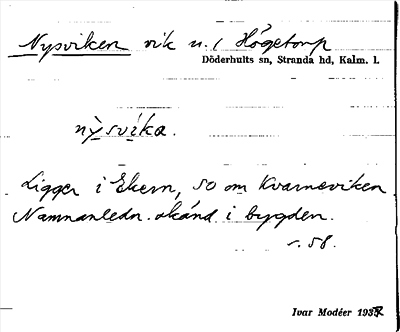 Nysviken vik u. / Högetorp
Döderhults sn, Stranda hd, Kalm. l.
nỳsvika.
Ligger i Ekern, SO om Kvarneviken.
Namnanledn. okänd i bygden.
s. 58.
Ivar Modéer 1937